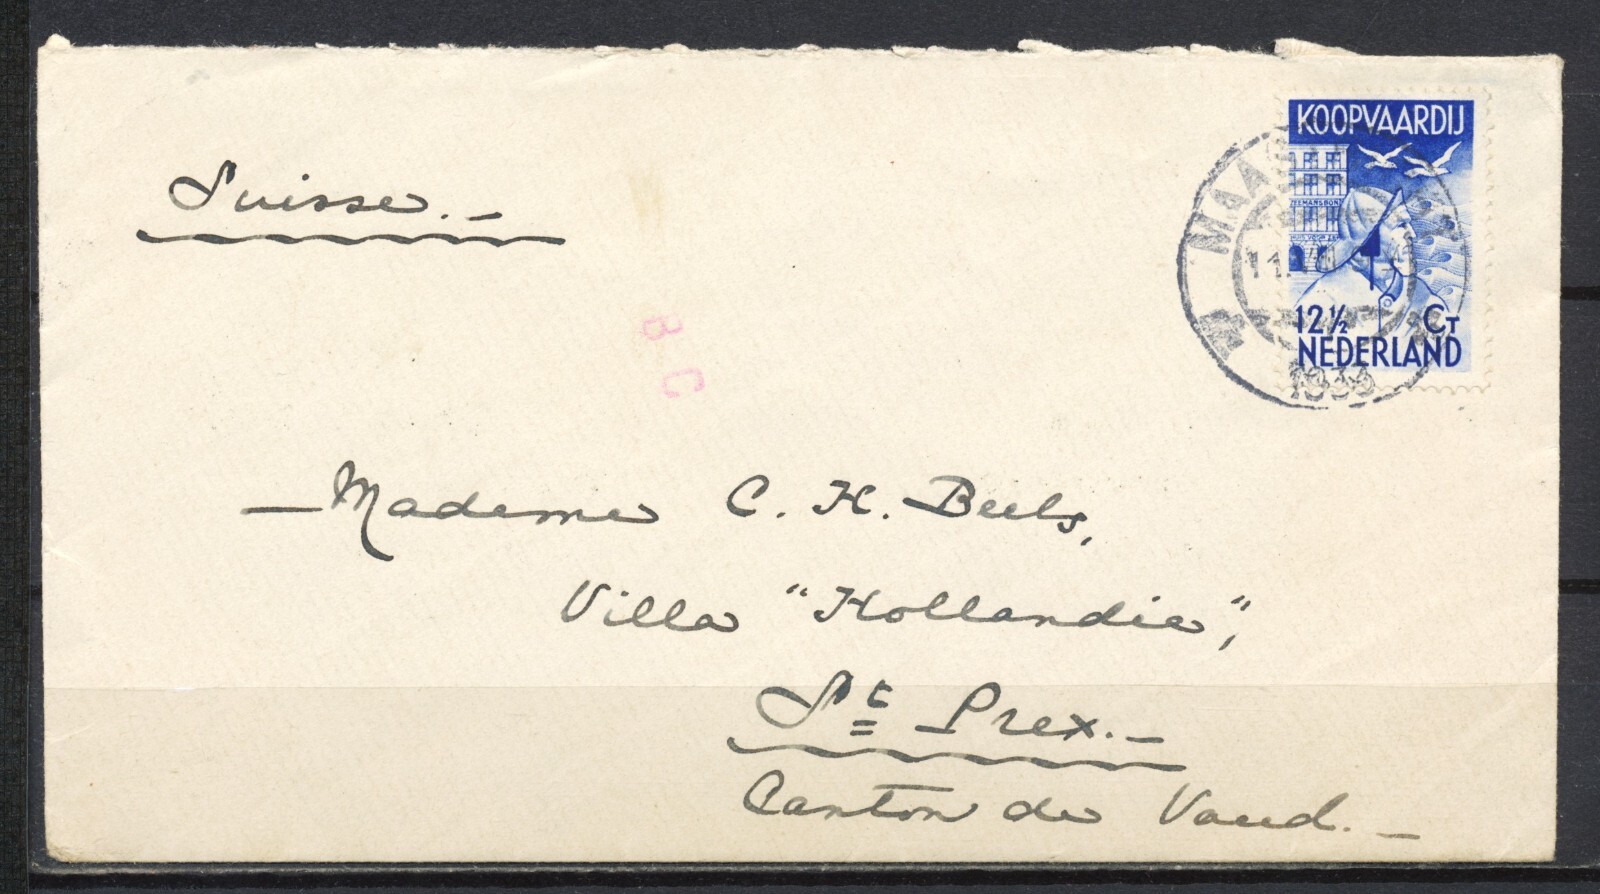 Suisse.-
KOOPVAARDIJ
ZEEMANSHOP
12½ CT
NEDERLAND
MAAS
1933
B C
Madame C. H. Beels,
Villa "Hollandia",
St Prex.-
Canton de Vaud.-